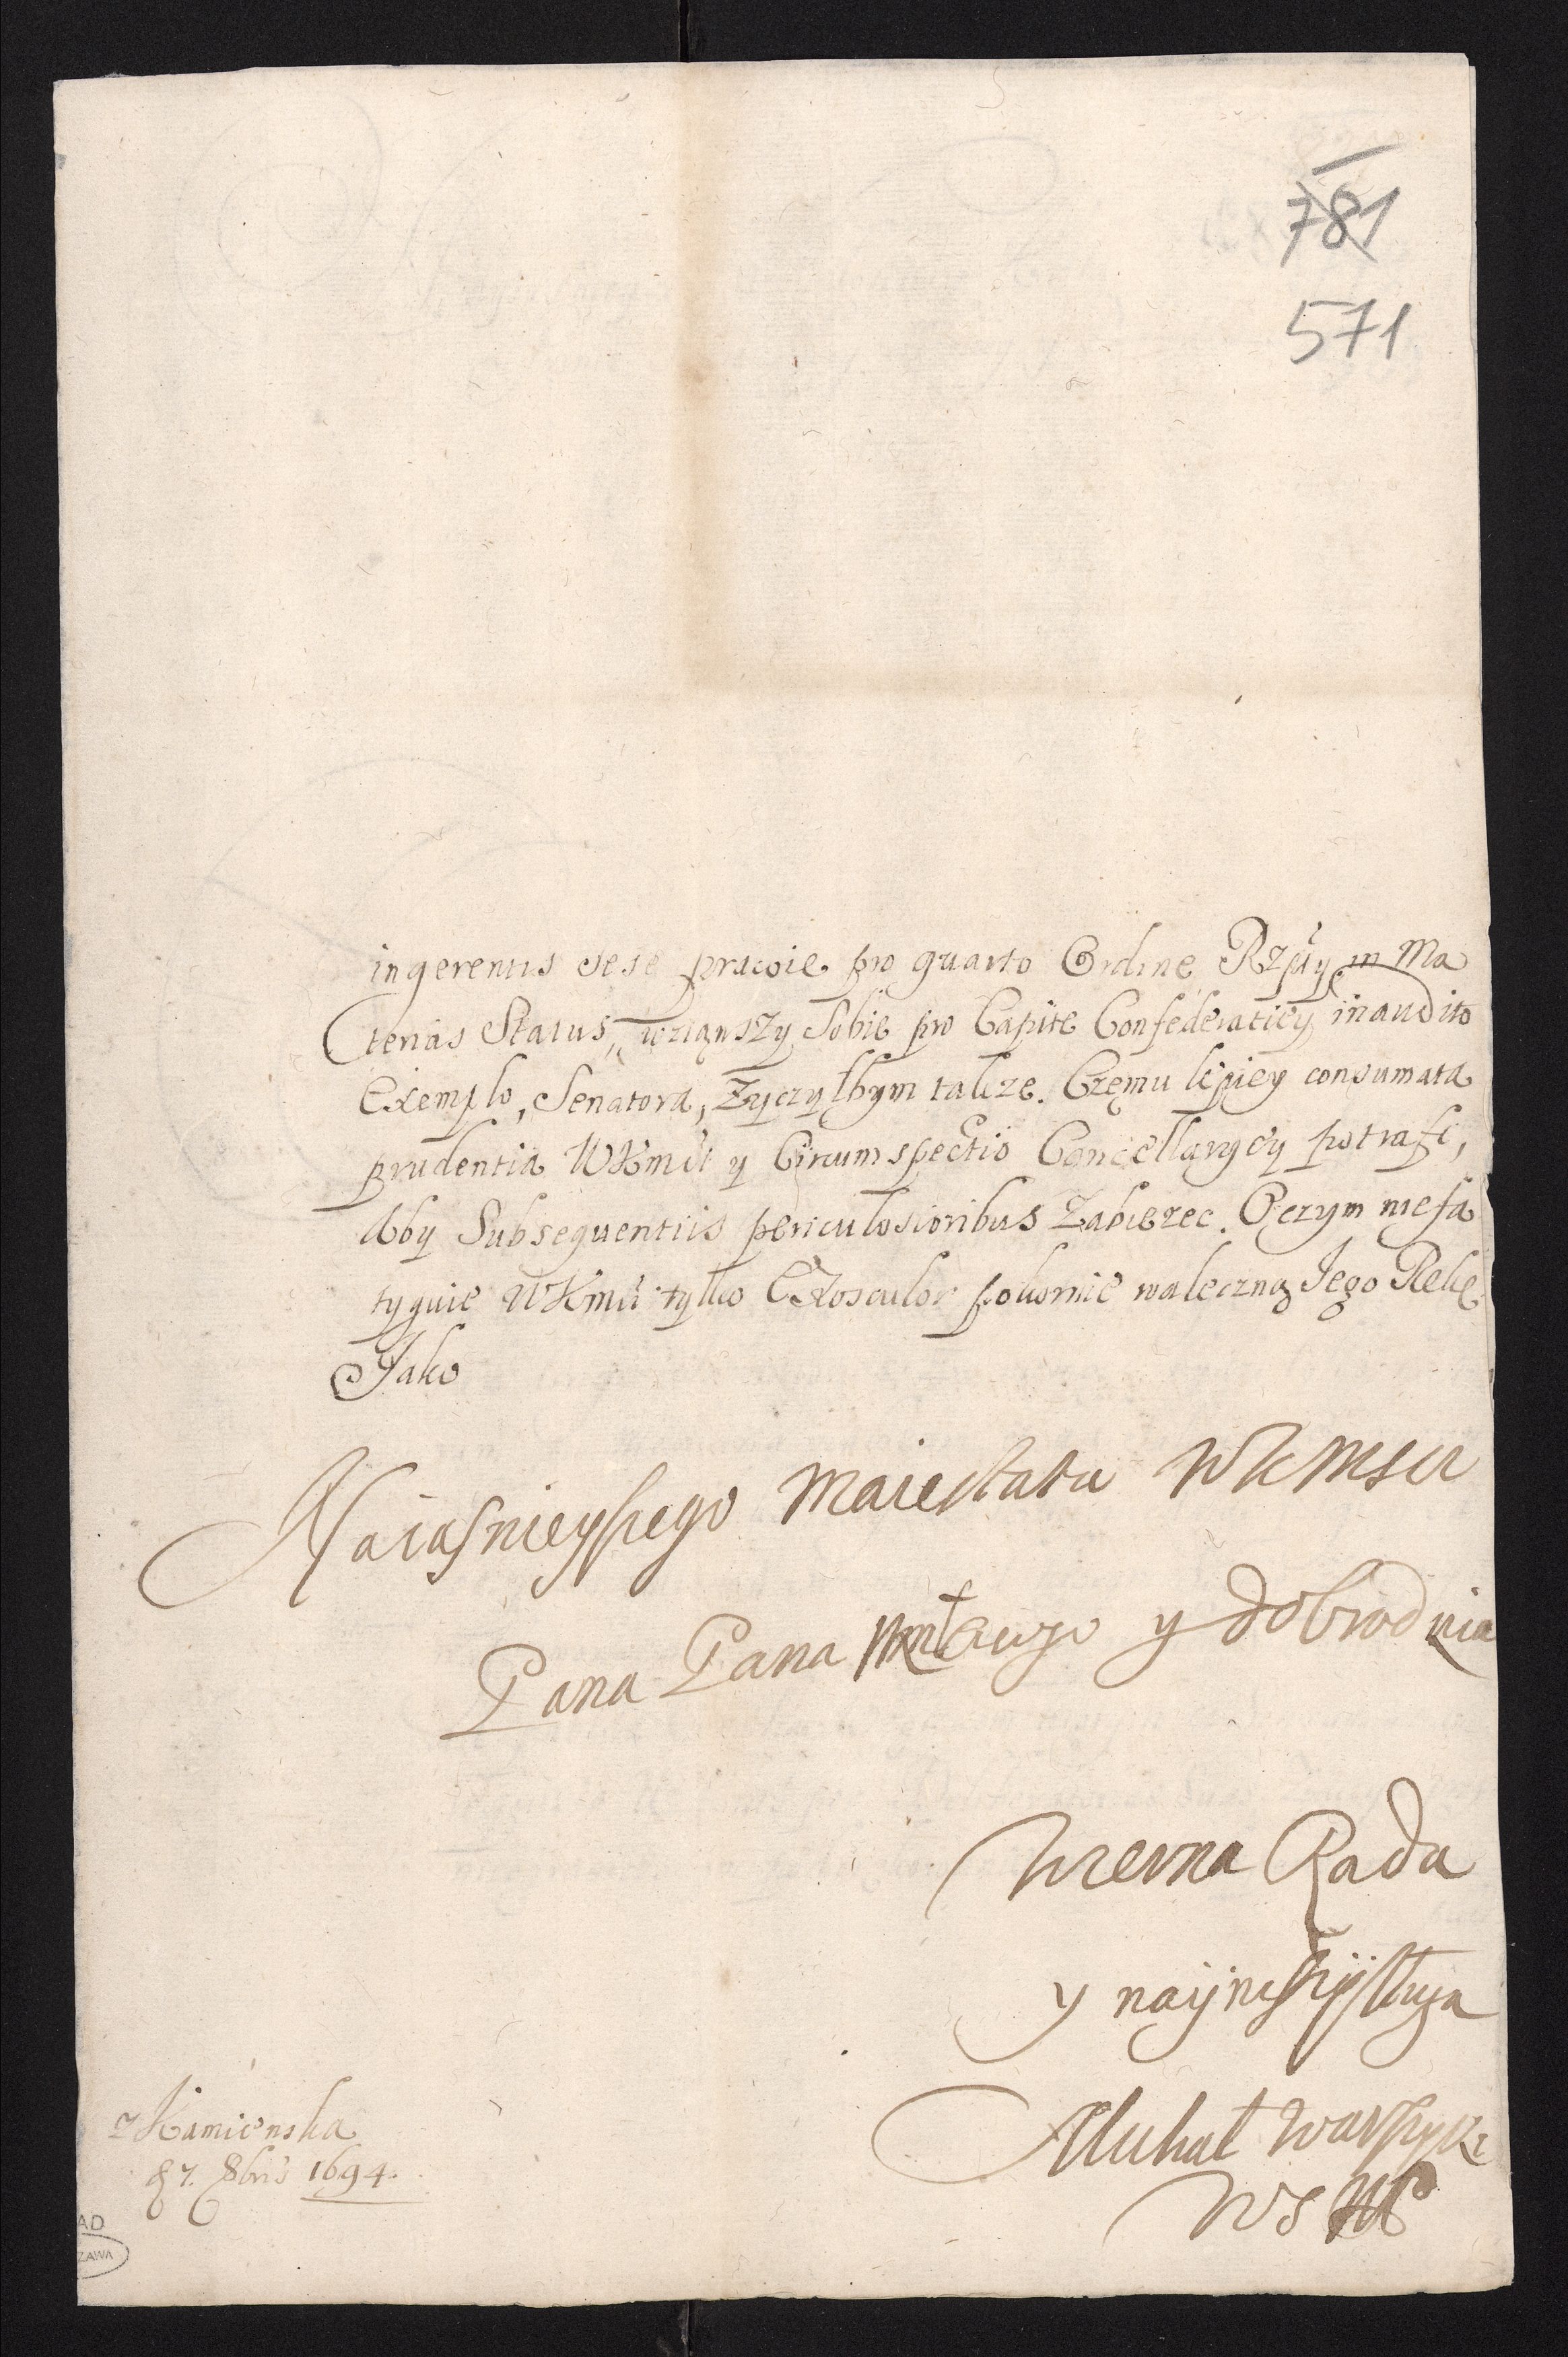 781
571
ingerentis sese prawie pro quarto Ordine Rzpty in Ma
terias Status, wziąwszy Sobie pro Capite Confederatiey inaudito
Exemplo, Senatora, Zyczyłbym takze. Czemu lepiey consumata
prudentia WKmći y Circumspectio Cancellaryey potrafi,
Aby Subsequentiis periculosioribus Zabierec. O czym niefa
tyguie WKmći tylko Exosculor pokornie waleczną Jego Rękę
Jako
Naiasnieyszego Maiestatu WKMsci
Pana Pana Młciwego y dobrodzieia
Wierna Rada
y nayniższy sługa
Michał Warszycki
WS
z Kamienska
d 7. 8bris 1694.
AD
ZAWA